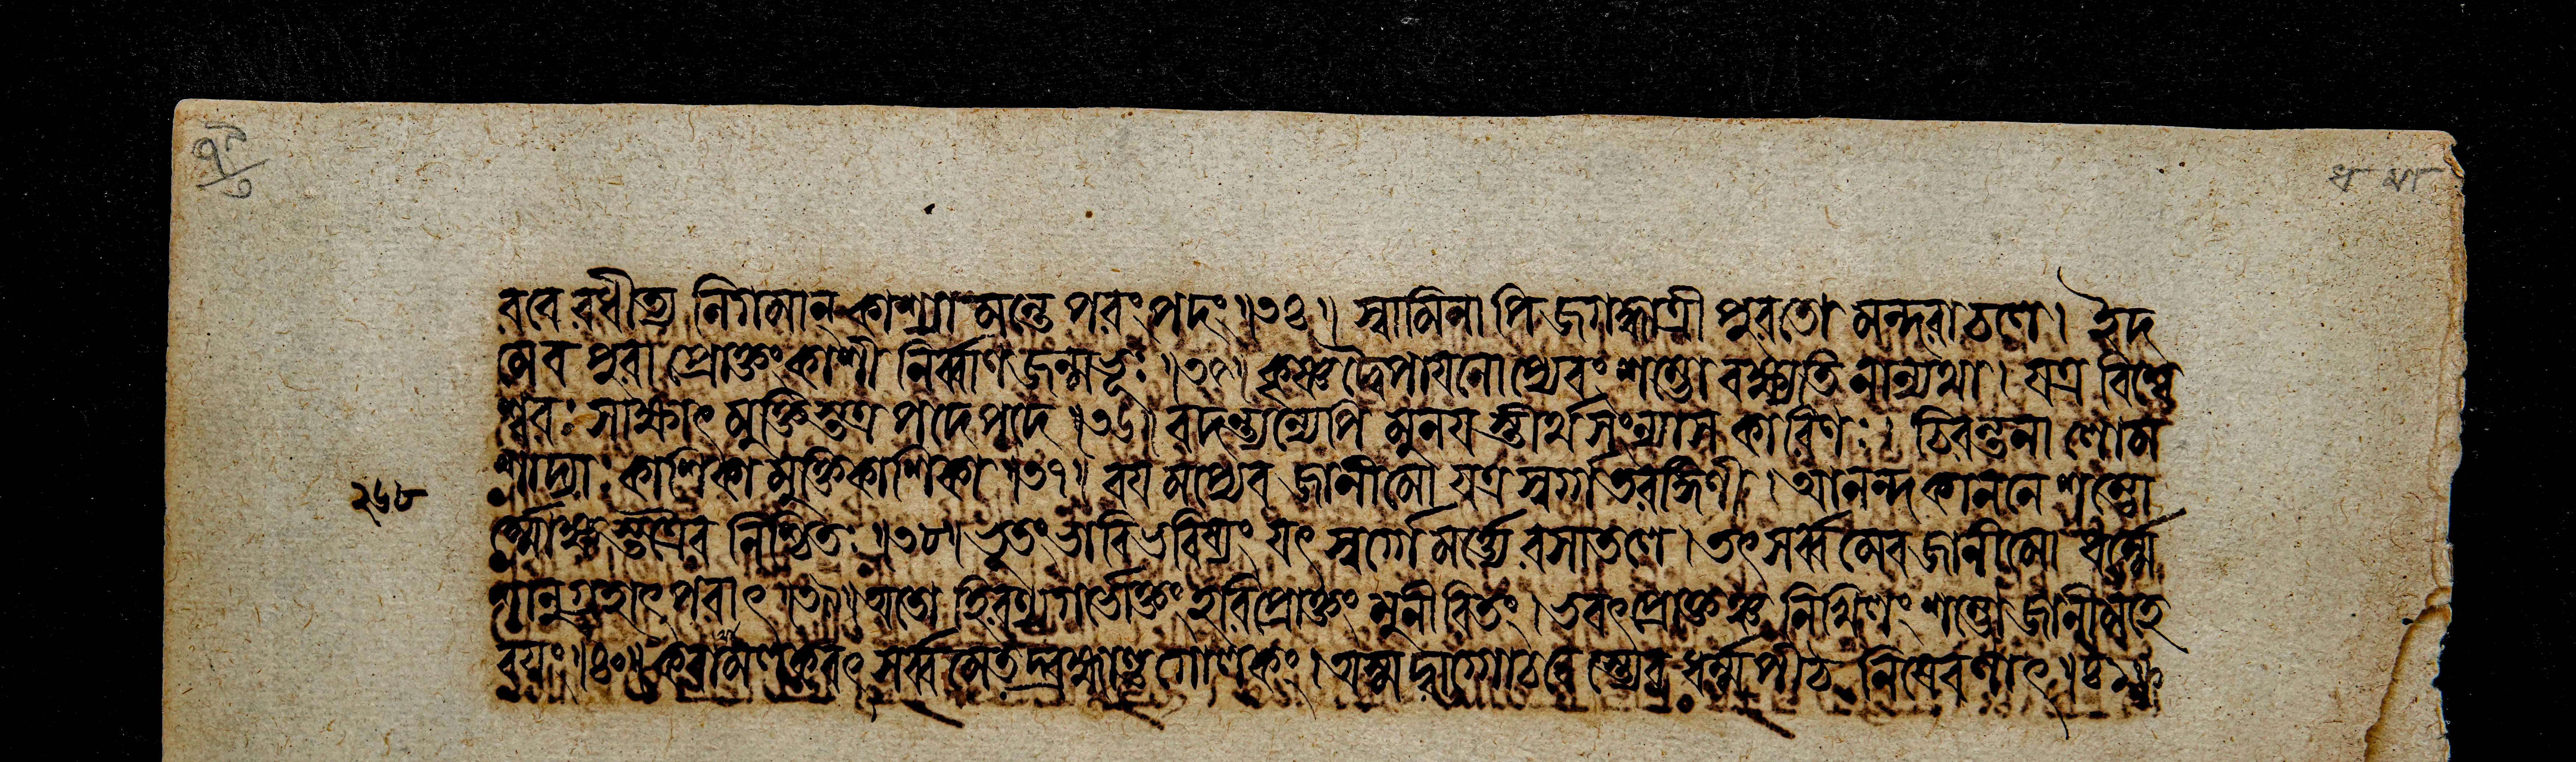 ররেরধীত্য নিগমান্ কাশ্যামন্তে পরংপদং ॥৩৪॥ স্বামিনাপি জগদ্ধাত্রী পুরতো মন্দরাচলে। ইদ
মেব পুরা প্রোক্তং কাশী নির্ব্বাণজন্মভূঃ ॥৩৫॥ কৃষ্ণদ্বৈপায়নোপ্যেবং শম্ভো বক্ষ্যতি নান্যথা। যত্র বিশ্বে
শ্বরঃ সাক্ষাৎ মুক্তিস্তত্র পদেপদে ॥৩৬॥ বদন্ত্যন্যেপি মুনয়স্তীর্থসংন্যাসকারিণঃ। চিরন্তনা লোম
শাদ্যাঃ কাশিকা মুক্তিকাশিকা ॥৩৭॥ বয়মপ্যেব জানীমো যত্র স্বর্গাতরঙ্গিণী। আনন্দকাননে শম্ভো
২৬৮
র্ম্মোক্ষস্তত্রৈব নিশ্চিতঃ ॥৩৮॥ ভূতং ভাবি ভবিষ্যং যৎ স্বর্গে মর্ত্ত্যে রসাতলে। তৎসর্ব্বমেব জানীমো ধর্ম্মে
শানুগ্রহাৎ পরাৎ ॥৩৯॥ অতো হিরণ্যগর্ভোক্তং হরিপ্রোক্তং মুনীরিতং। ভবৎপ্রোক্তঞ্চ নিখিলং শম্ভো জানীমহে
বয়ং ॥৪০॥ করামলকবৎ সর্ব্বমেতদ্ব্রহ্মাণ্ডগোলকং। অস্মদ্বাগ্গোচরেস্ত্যেব ধর্ম্মপীঠনিষেবণাৎ ॥